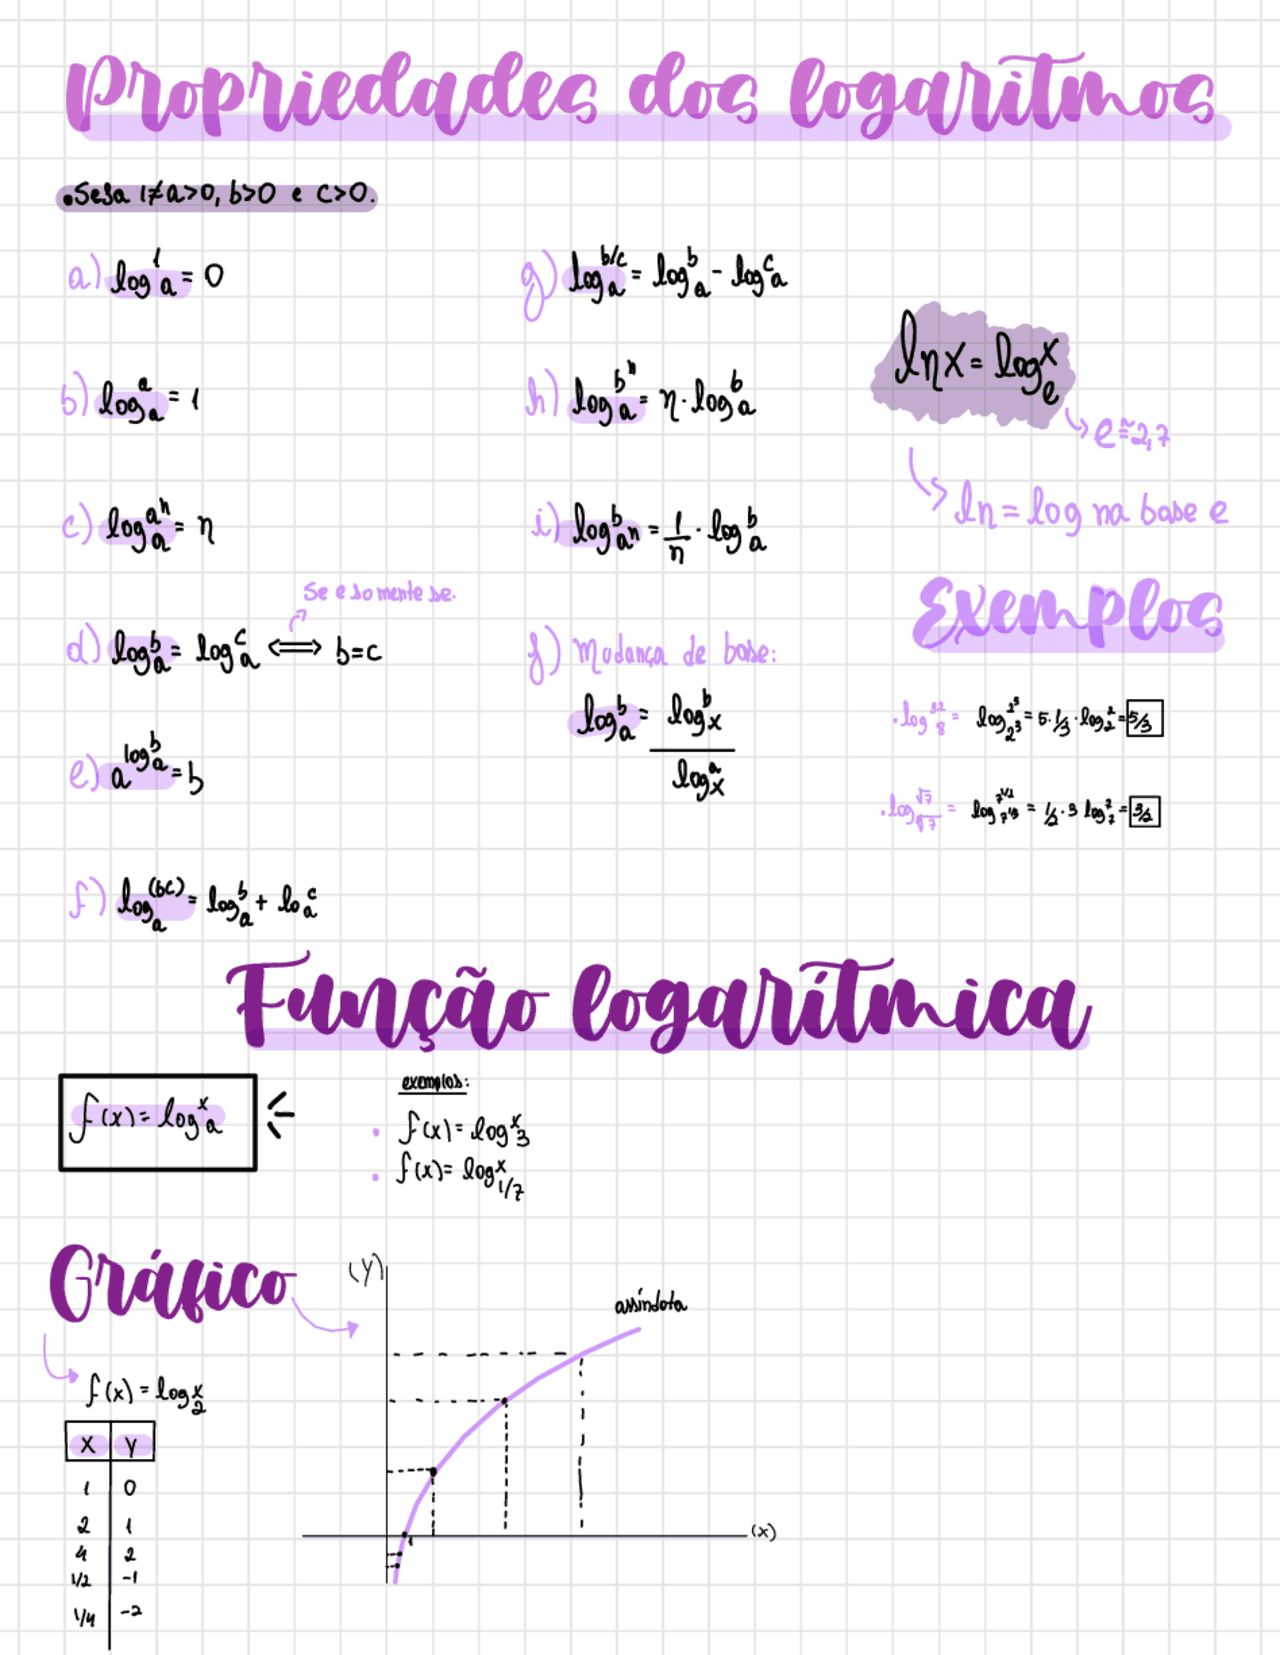 Propriedades dos logaritmos
• Seja 1≠a>0, b>0 e c>0.
a) logₐ¹ = 0
b) logₐᵃ = 1
c) logₐ^aⁿ = n
Se e somente se.
d) logₐᵇ = logₐᶜ ⟺ b=c
e) a^logₐᵇ = b
f) logₐ^(bc) = logₐᵇ + loₐᶜ
g) logₐ^b/c = logₐᵇ - logₐᶜ
h) logₐ^bⁿ = n · logₐᵇ
i) log_aⁿ^b = 1/n · logₐᵇ
j) Mudança de base:
logₐᵇ = logₓᵇ / logₓᵃ
ln x = logₑˣ
e ≅ 2,7
ln = log na base e
Exemplos
• log₈³² = log_2³^2⁵ = 5 · 1/3 · log₂² = 5/3
• log_∛7^√7 = log_7^1/3^7^1/2 = 1/2 · 3 log₇⁷ = 3/2
Função logarítmica
f(x) = logₐˣ
exemplos:
• f(x) = log₃ˣ
• f(x) = log_1/7^x
Gráfico
f(x) = log₂ˣ
x y
1 0
2 1
4 2
1/2 -1
1/4 -2
(y)
assíndota
1
(x)